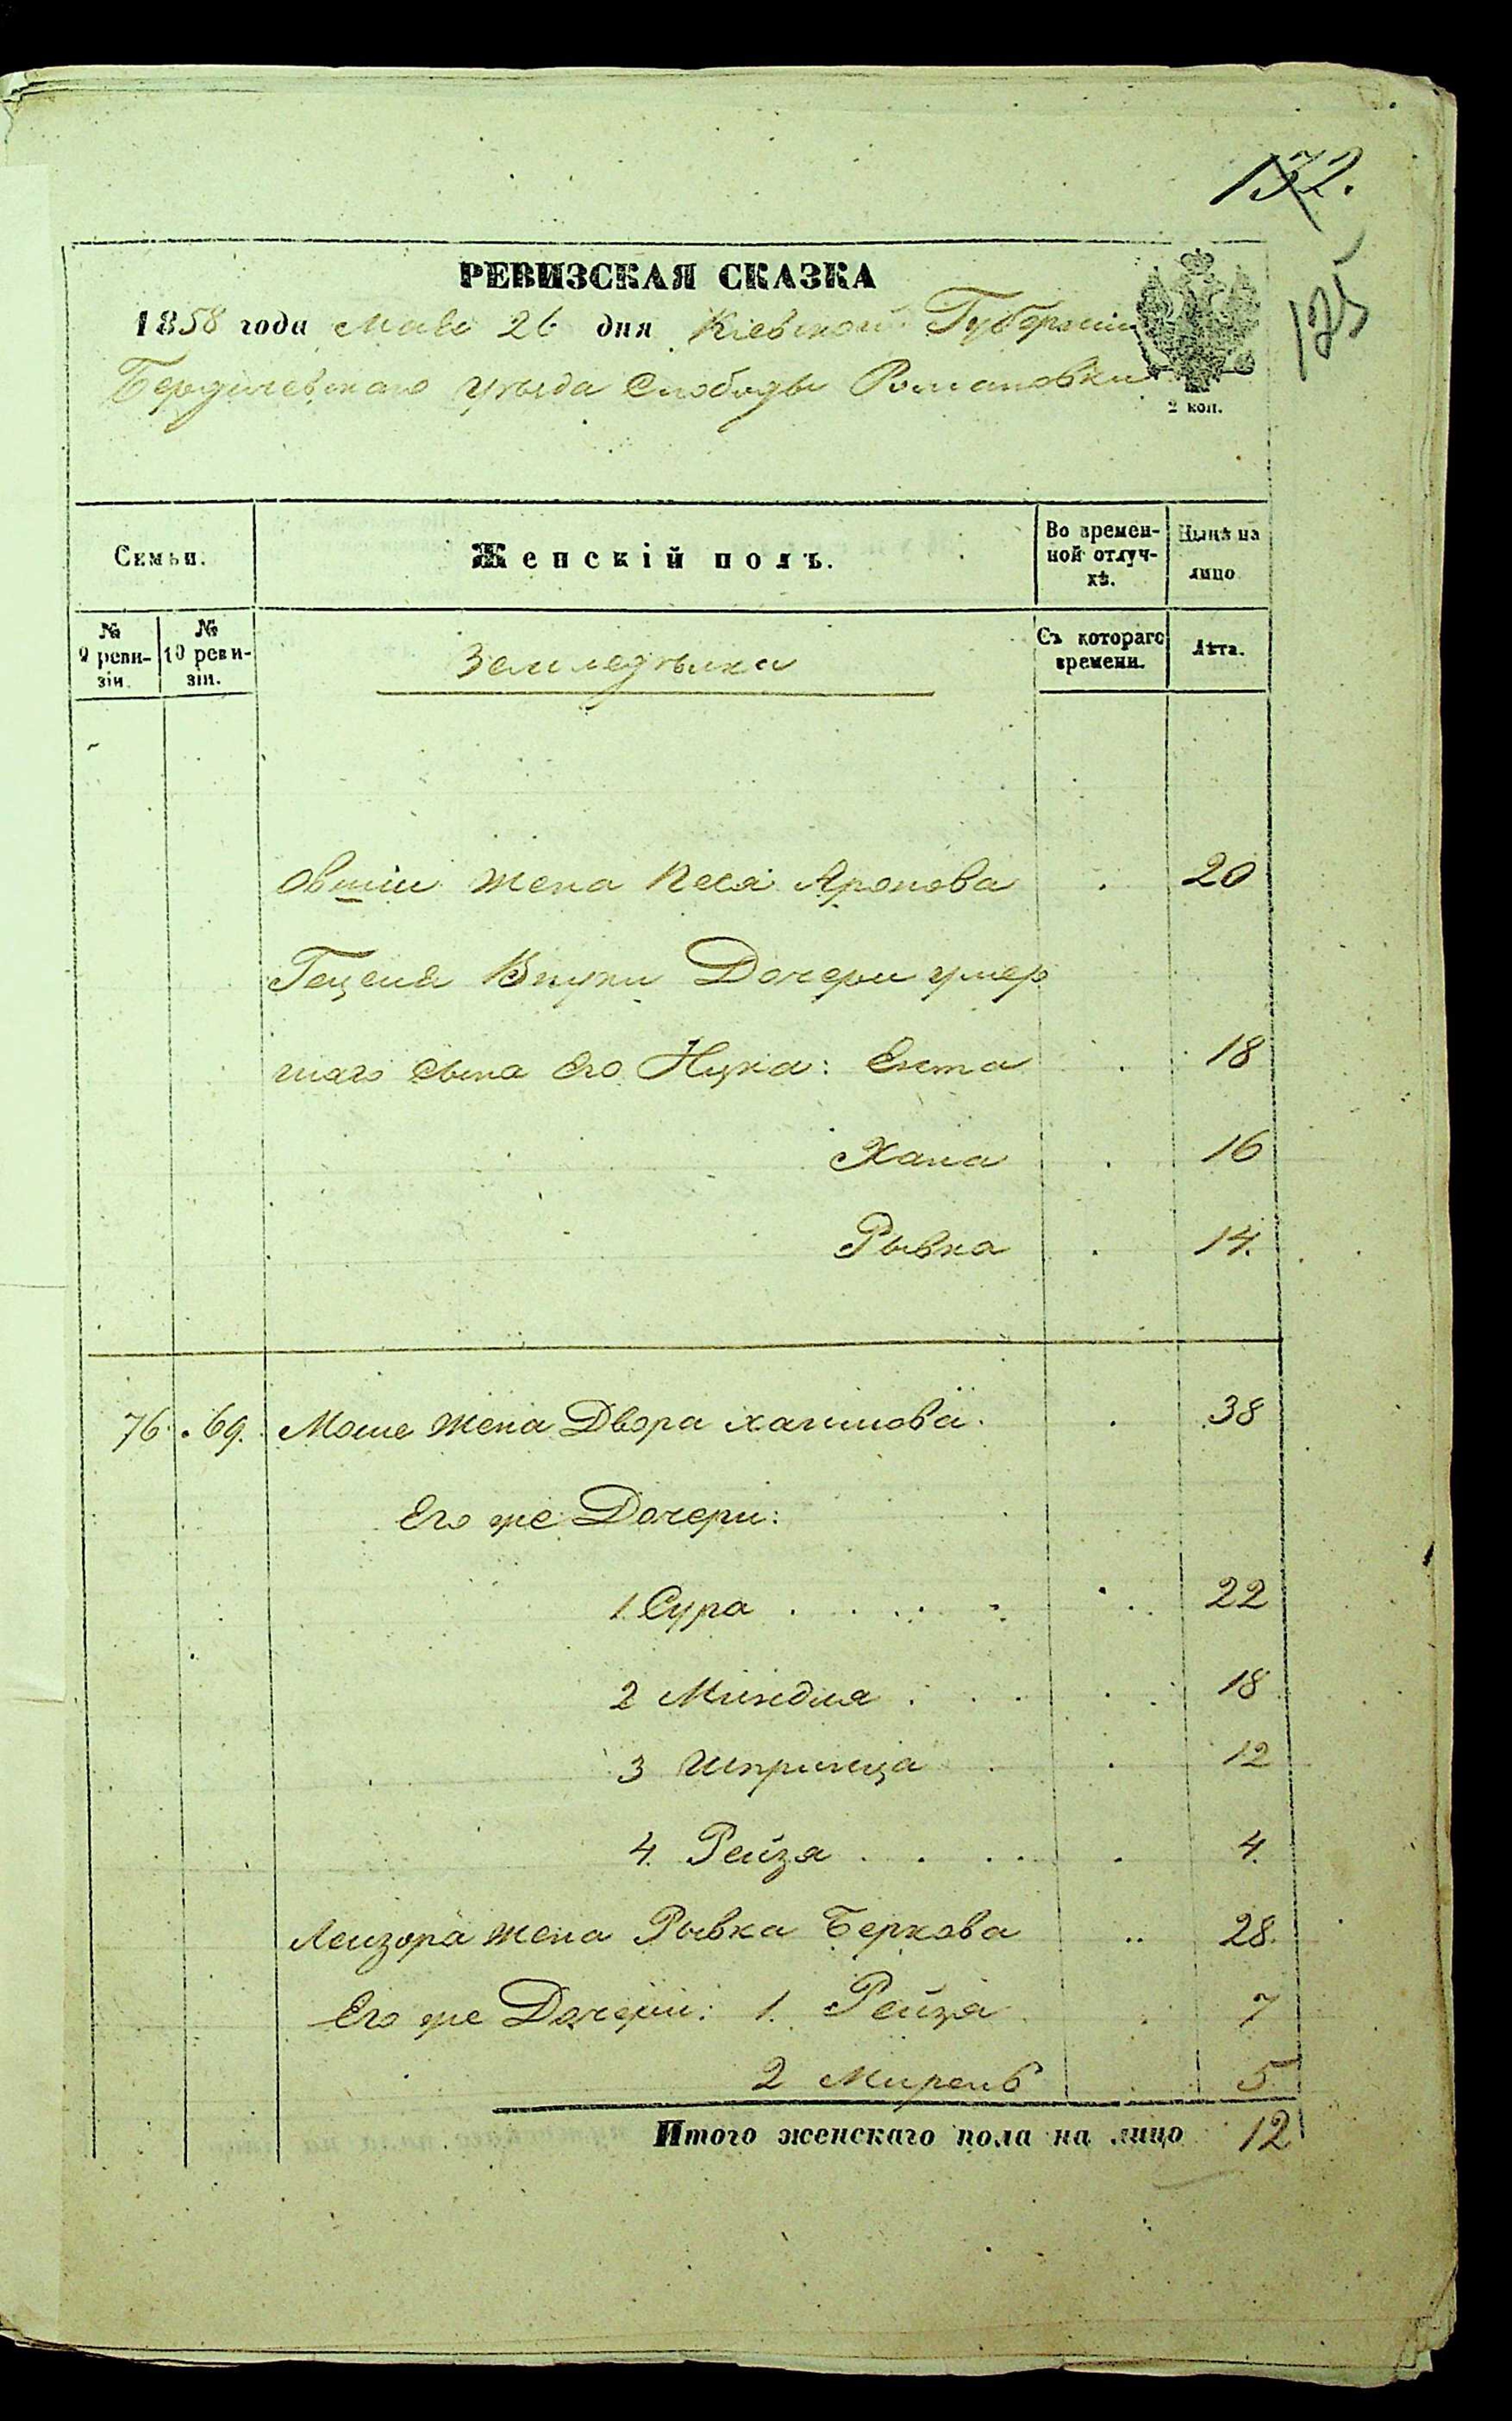 132.
125
РЕВИЗСКАЯ СКАЗКА
1858 года Маія 26 дня Кіевской Губерніи
Бердичевскаго уѣзда Слободы Романовки
2 коп.
Семьи.
Женскій полъ.
Во времен-
ной отлуч-
кѣ.
Нынѣ на
лицо
№
9 реви-
зіи.
№
10 реви-
зіи.
Земледѣльцы
Съ котораго
времени.
Лѣта.
Овшіи жена Песя Аронова 20
Гецеля Внуки Дочери умер
шаго сына Его Нуха: Ента 18
Хана 16
Рывка 14.
76. 69. Моше жена Двора хаимова. 38
Его же Дочери:
1 Сура 22
2 Миндля 18
3 Шпринца 12
4. Рейзя 4.
Лейзора жена Рывка Беркова 28.
Его же Дочери: 1. Рейзя 7
2 Мирель 5
Итого женскаго пола на лицо 12